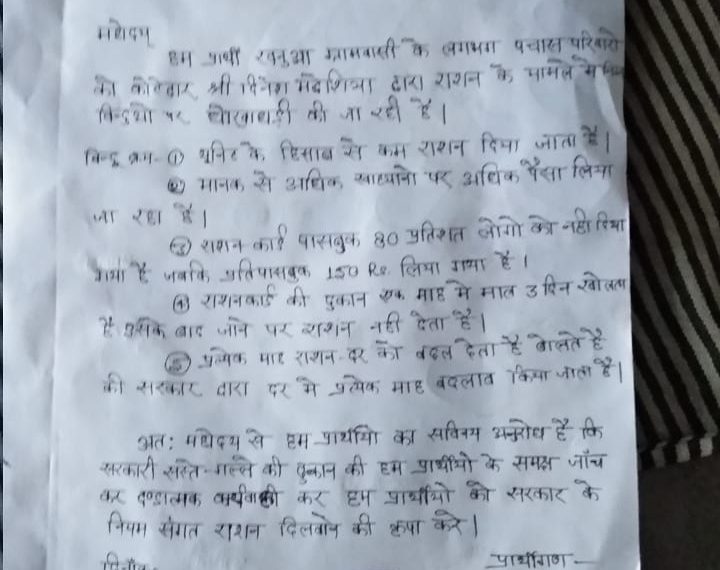 महोदय
हम प्रार्थी रवनुआ ग्रामवासी के लगभग पचास परिवारो
को कोटेदार श्री दिनेश मदेशिया द्वारा राशन के मामले मे निम्न
बिन्दुओ पर धोखाधड़ी की जा रही है।
बिन्दु क्रम- ① यूनिट के हिसाब से कम राशन दिया जाता है।
② मानक से अधिक खाद्यानो पर अधिक पैसा लिया
जा रहा है।
③ राशन कार्ड पासबुक 80 प्रतिशत लोगो को नही दिया
गया है जबकि प्रतिपासबुक 150 Rs. लिया गया है।
④ राशनकार्ड की दुकान एक माह मे मात्र 3 दिन खोलता
है उसके बाद जाने पर राशन नही देता है।
⑤ प्रत्येक माह राशन दर को बदल देता है बोलते है
की सरकार द्वारा दर मे प्रत्येक माह बदलाव किया जाता है।
अत: महोदय से हम प्रार्थीयो का सविनय अनुरोध है कि
सरकारी सस्ते-गल्ले की दुकान की हम प्रार्थीयो के समक्ष जाँच
कर दण्डात्मक कार्यवाही कर हम प्रार्थीयो को सरकार के
नियम संगत राशन दिलवाने की कृपा करे।
दिनाँक प्रार्थीगण-